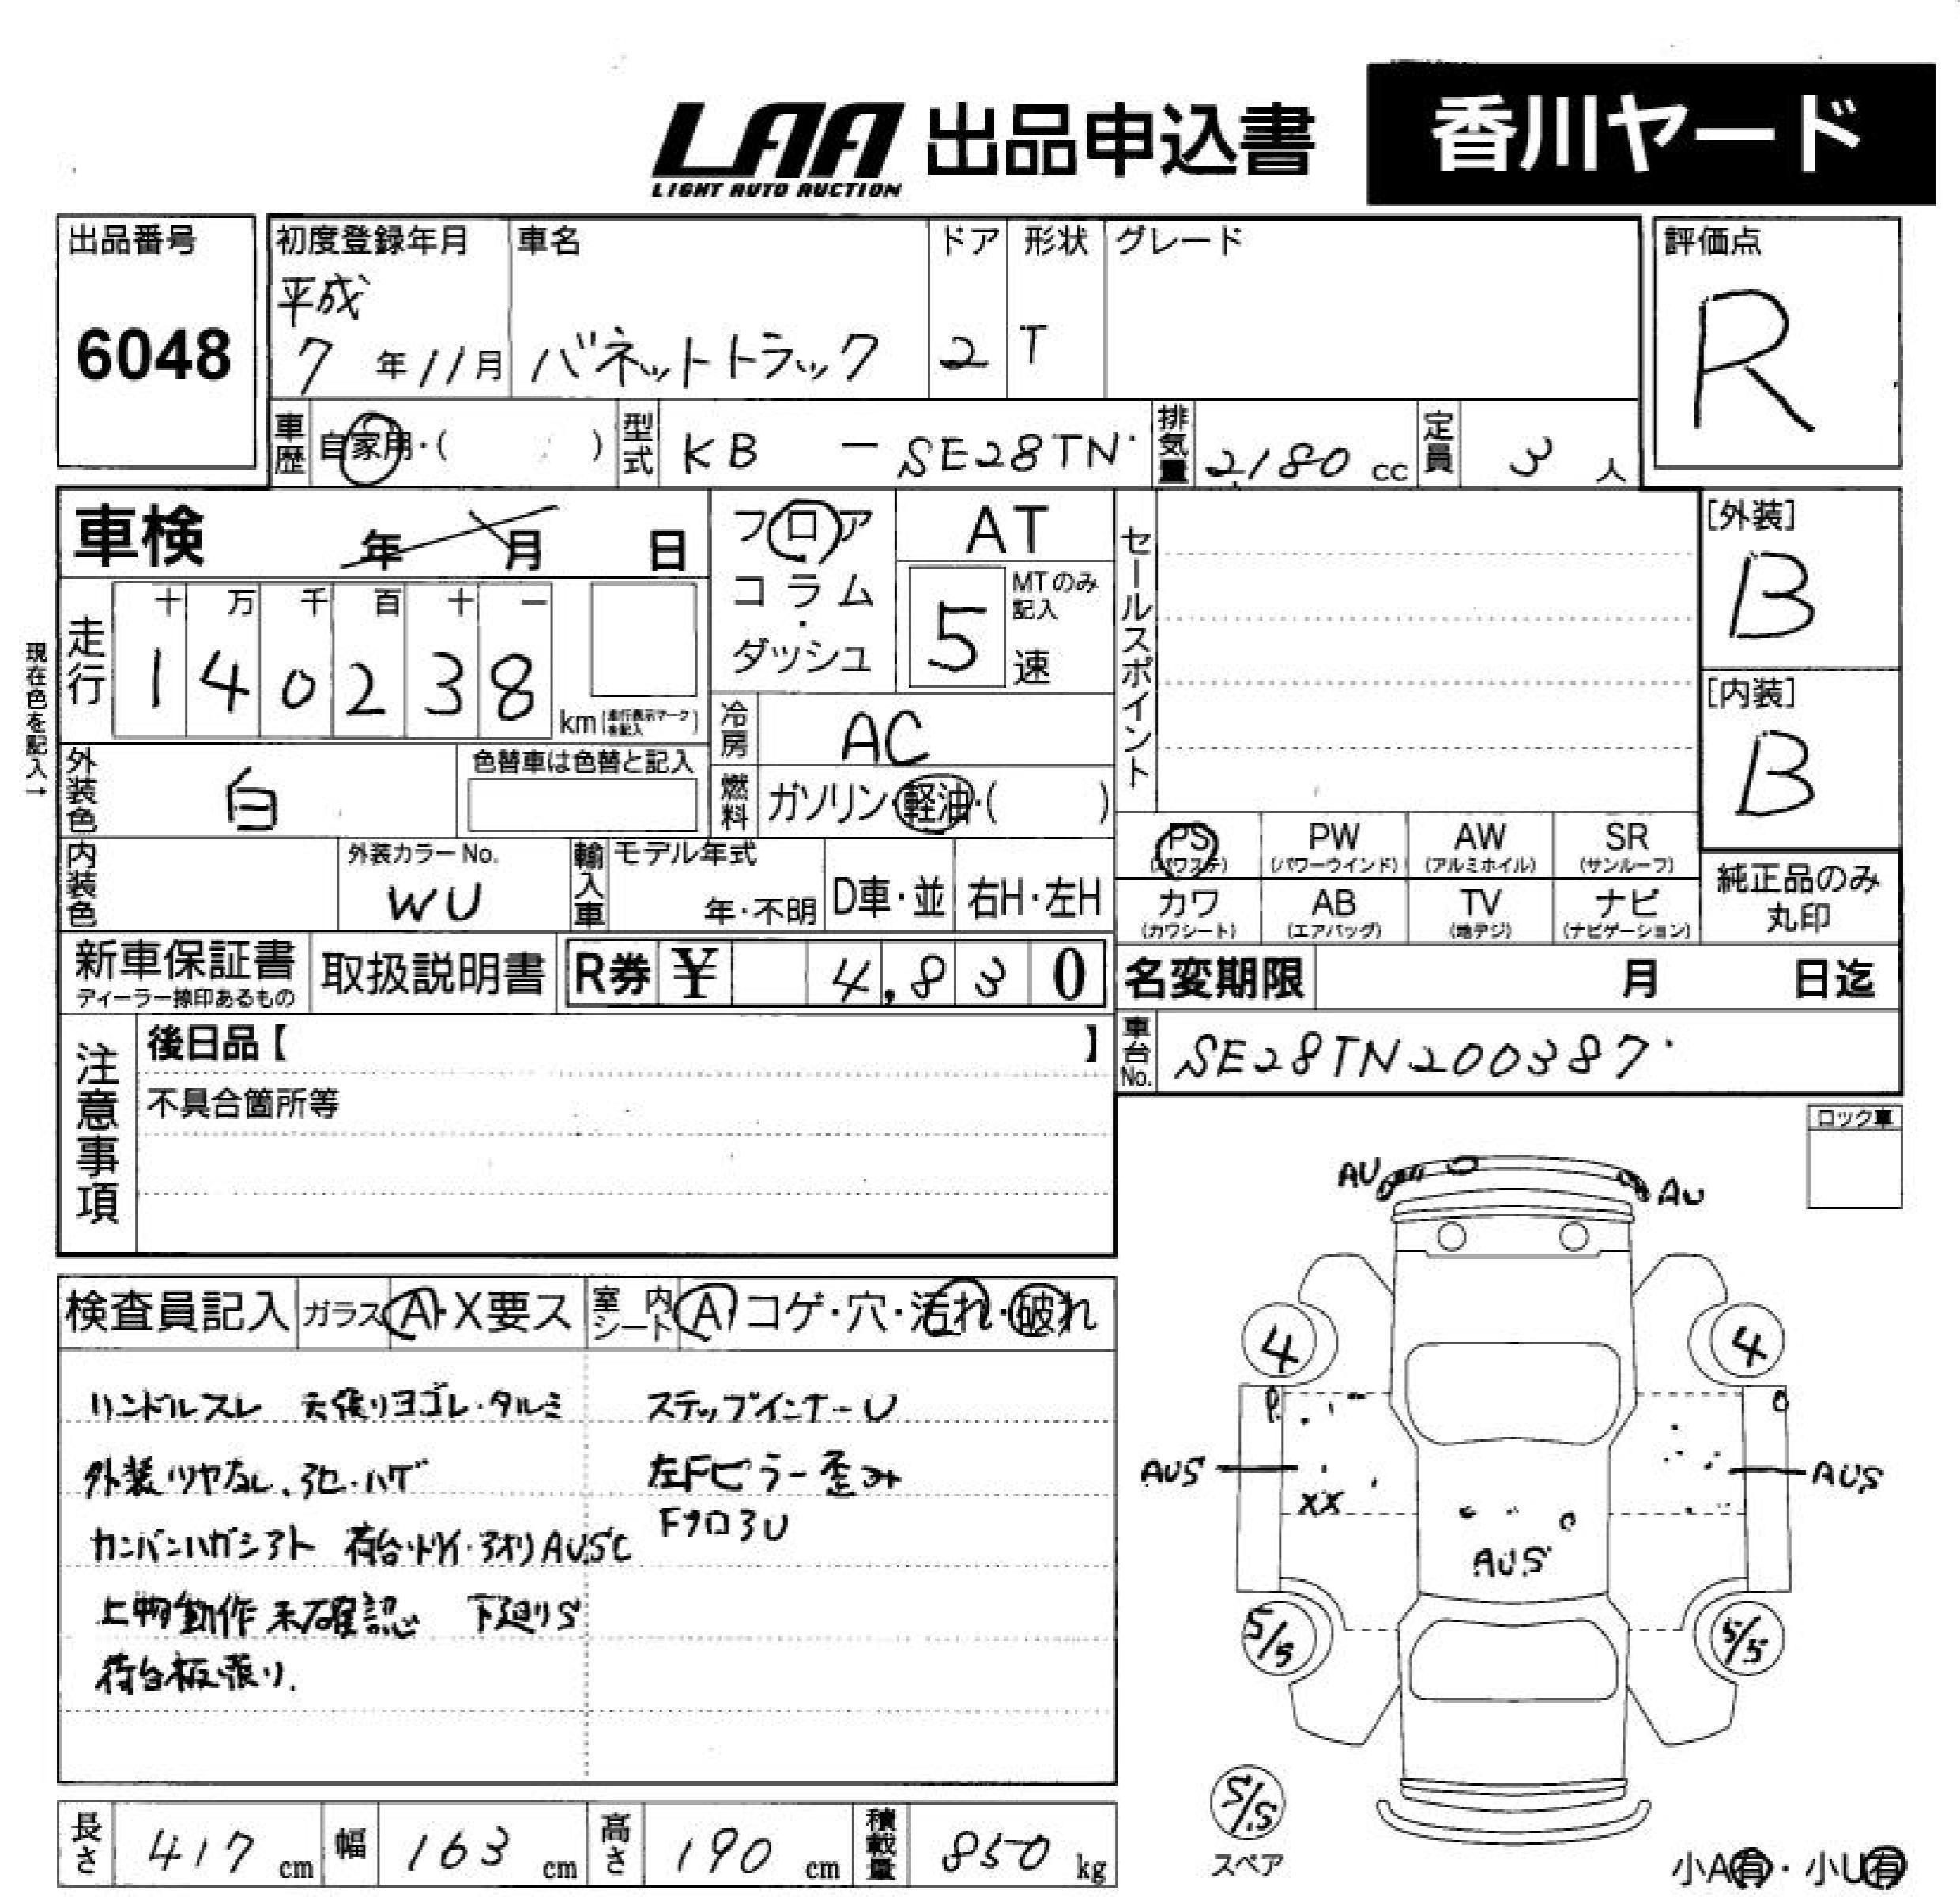 LAA 出品申込書 香川ヤード
LIGHT AUTO AUCTION
出品番号 初度登録年月 車名 ドア 形状 グレード 評価点
平成
6048 7年11月 バネットトラック 2 T R
車歴 自家用・( ) 型式 KB - SE28TN 排気量 2,180 cc 定員 3人
車検 年 月 日 フロア AT [外装]
コラム・ 5 MTのみ記入 B
ダッシュ 速
セールスポイント
走行 十 万 千 百 十 一
1 4 0 2 3 8 km (走行表示マークを記入)
現在色を記入→
[内装]
冷房 AC B
外装色 白 色替車は色替と記入 燃料 ガソリン・軽油・( )
PS PW AW SR
(パワステ) (パワーウインド) (アルミホイル) (サンルーフ)
内装色 外装カラーNo. 輸入車 モデル年式
WU 年・不明 D車・並 右H・左H
カワ AB TV ナビ 純正品のみ
(カワシート) (エアバッグ) (地デジ) (ナビゲーション) 丸印
新車保証書 取扱説明書 R券 ¥ 4,830 名変期限 月 日迄
ディーラー捺印あるもの
注意事項 後日品【 】 車台No. SE28TN200387
不具合箇所等
ロック車
AU AU
検査員記入 ガラス A・X要ス 室内シート A コゲ・穴・汚れ・破れ
4 4
ハンドルスレ 天張りヨゴレ・タルミ ステップインナーU
外装ツヤなし、アセ・ハゲ 左Fピラー歪み
AUS AUS
XX
カンバンハガシアト 荷台・トリイ・アオリAUSC Fクロス U
AUS
上物動作未確認 下廻りS
5/5 5/5
荷台板張り.
5/5
スペア
長さ 417 cm 幅 163 cm 高さ 190 cm 積載量 850 kg
小A有・小U有